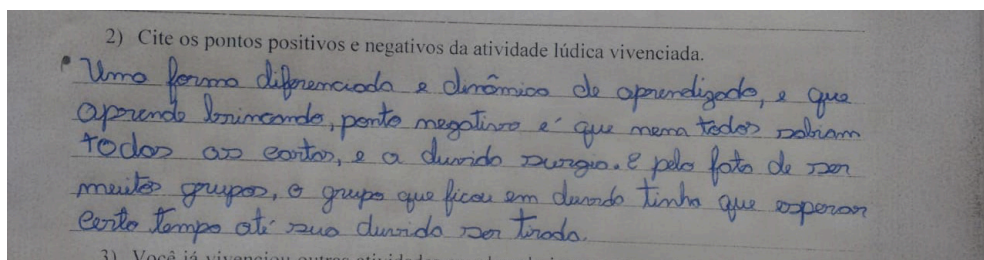 2) Cite os pontos positivos e negativos da atividade lúdica vivenciada.
Uma forma diferenciada e dinâmica de aprendizado, e que
aprende brincando, ponto negativo é que nem todos sabiam
todas as cartas, e a duvida surgia. E pelo fato de ser
muitos grupos, o grupo que ficou em duvida tinha que esperar
certo tempo até sua duvida ser tirada.
3) Você já vivenciou outras